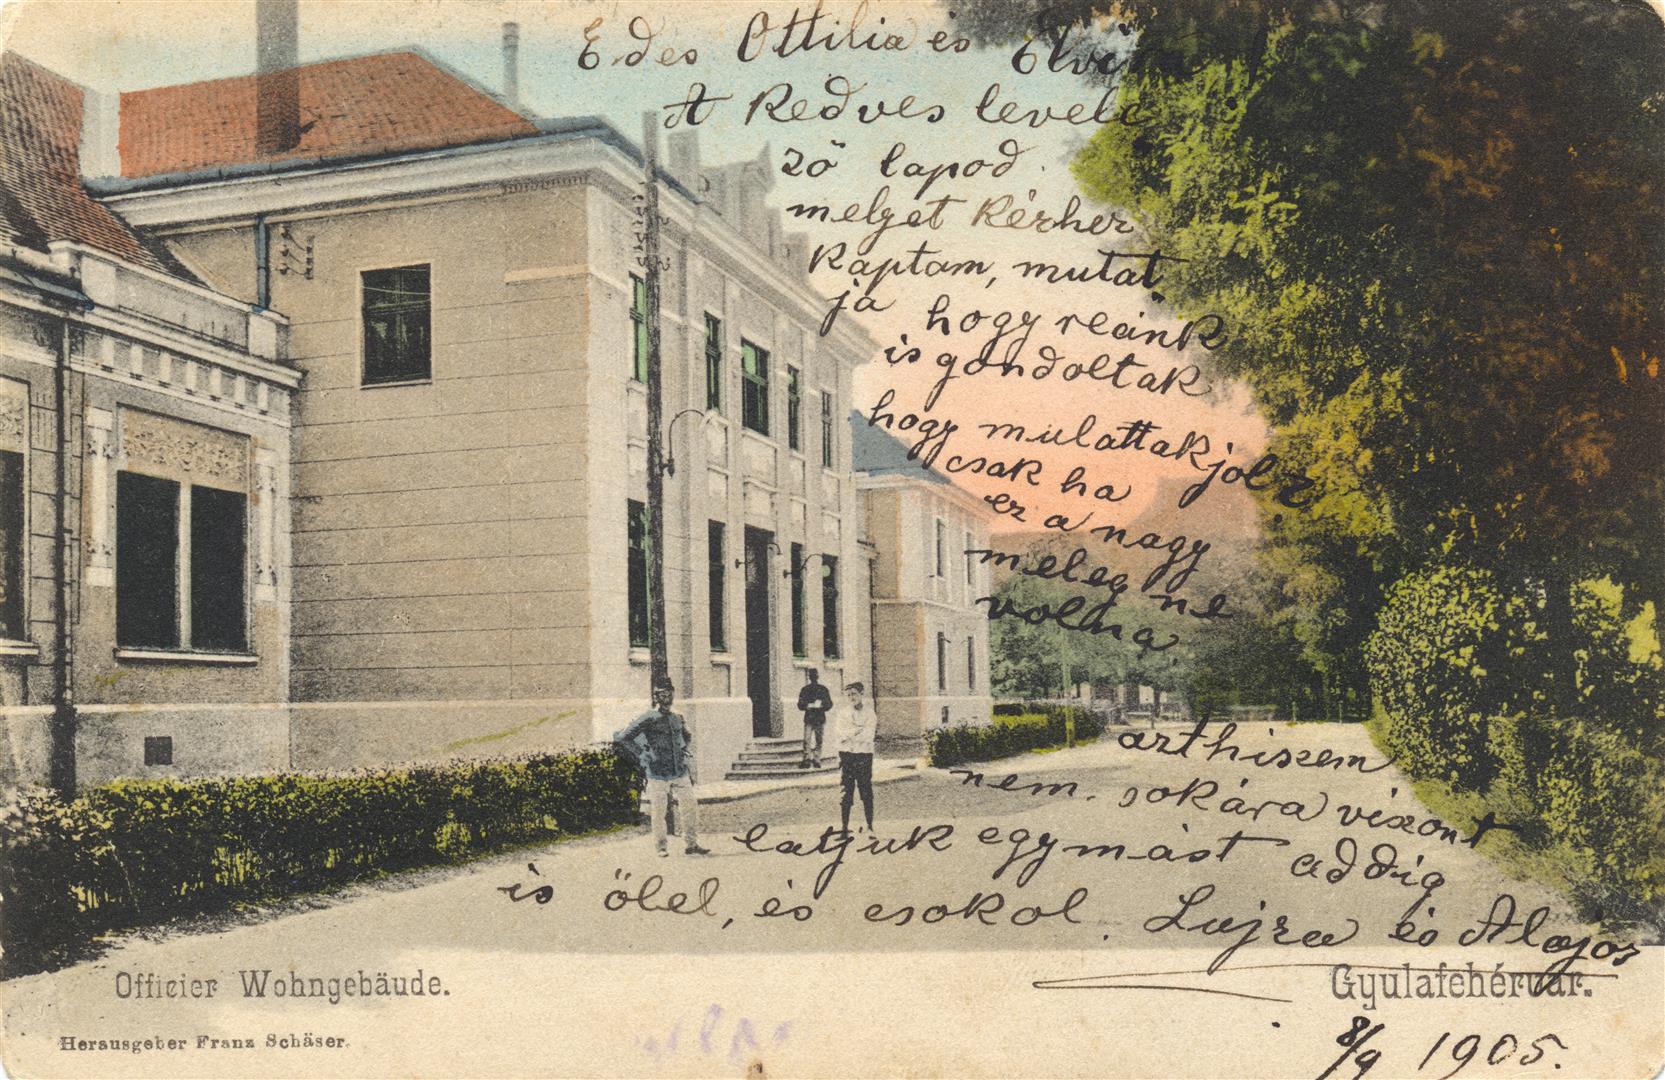 Edes Ottilia és Elvira!
A Kedves levele
ző lapod
melyet Kézhez
kaptam, mutat
ja hogy reánk
is gondoltak
hogy mulattak jol?
csak ha
ez a nagy
meleg ne
volna
azthiszem
nem sokára viszont
latjuk egymást addig
is ölel, és csokol. Lujza és Alajos
Officier Wohngebäude.
Gyulafehérvár.
Herausgeber Franz Schäser.
8/9 1905.